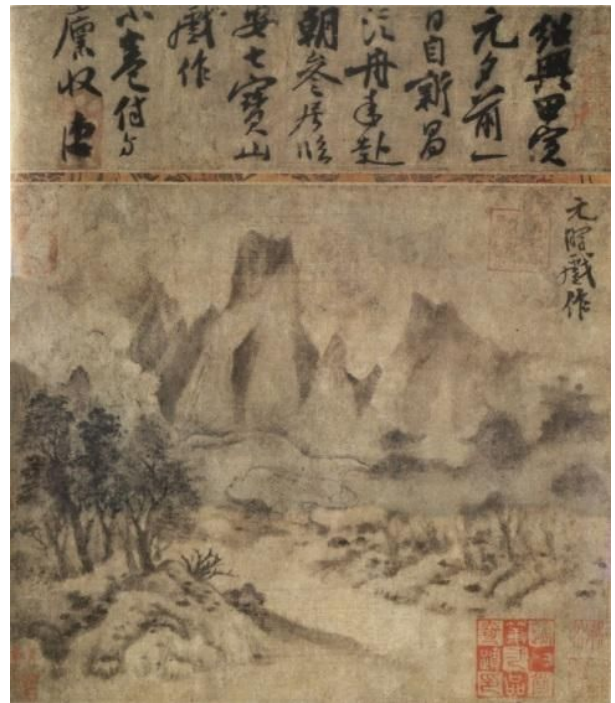 紹興甲寅
元夕前一
日自新昌
泛舟来赴
朝參居臨
安七寶山
戲作
小卷付与
廩收
元暉戲作